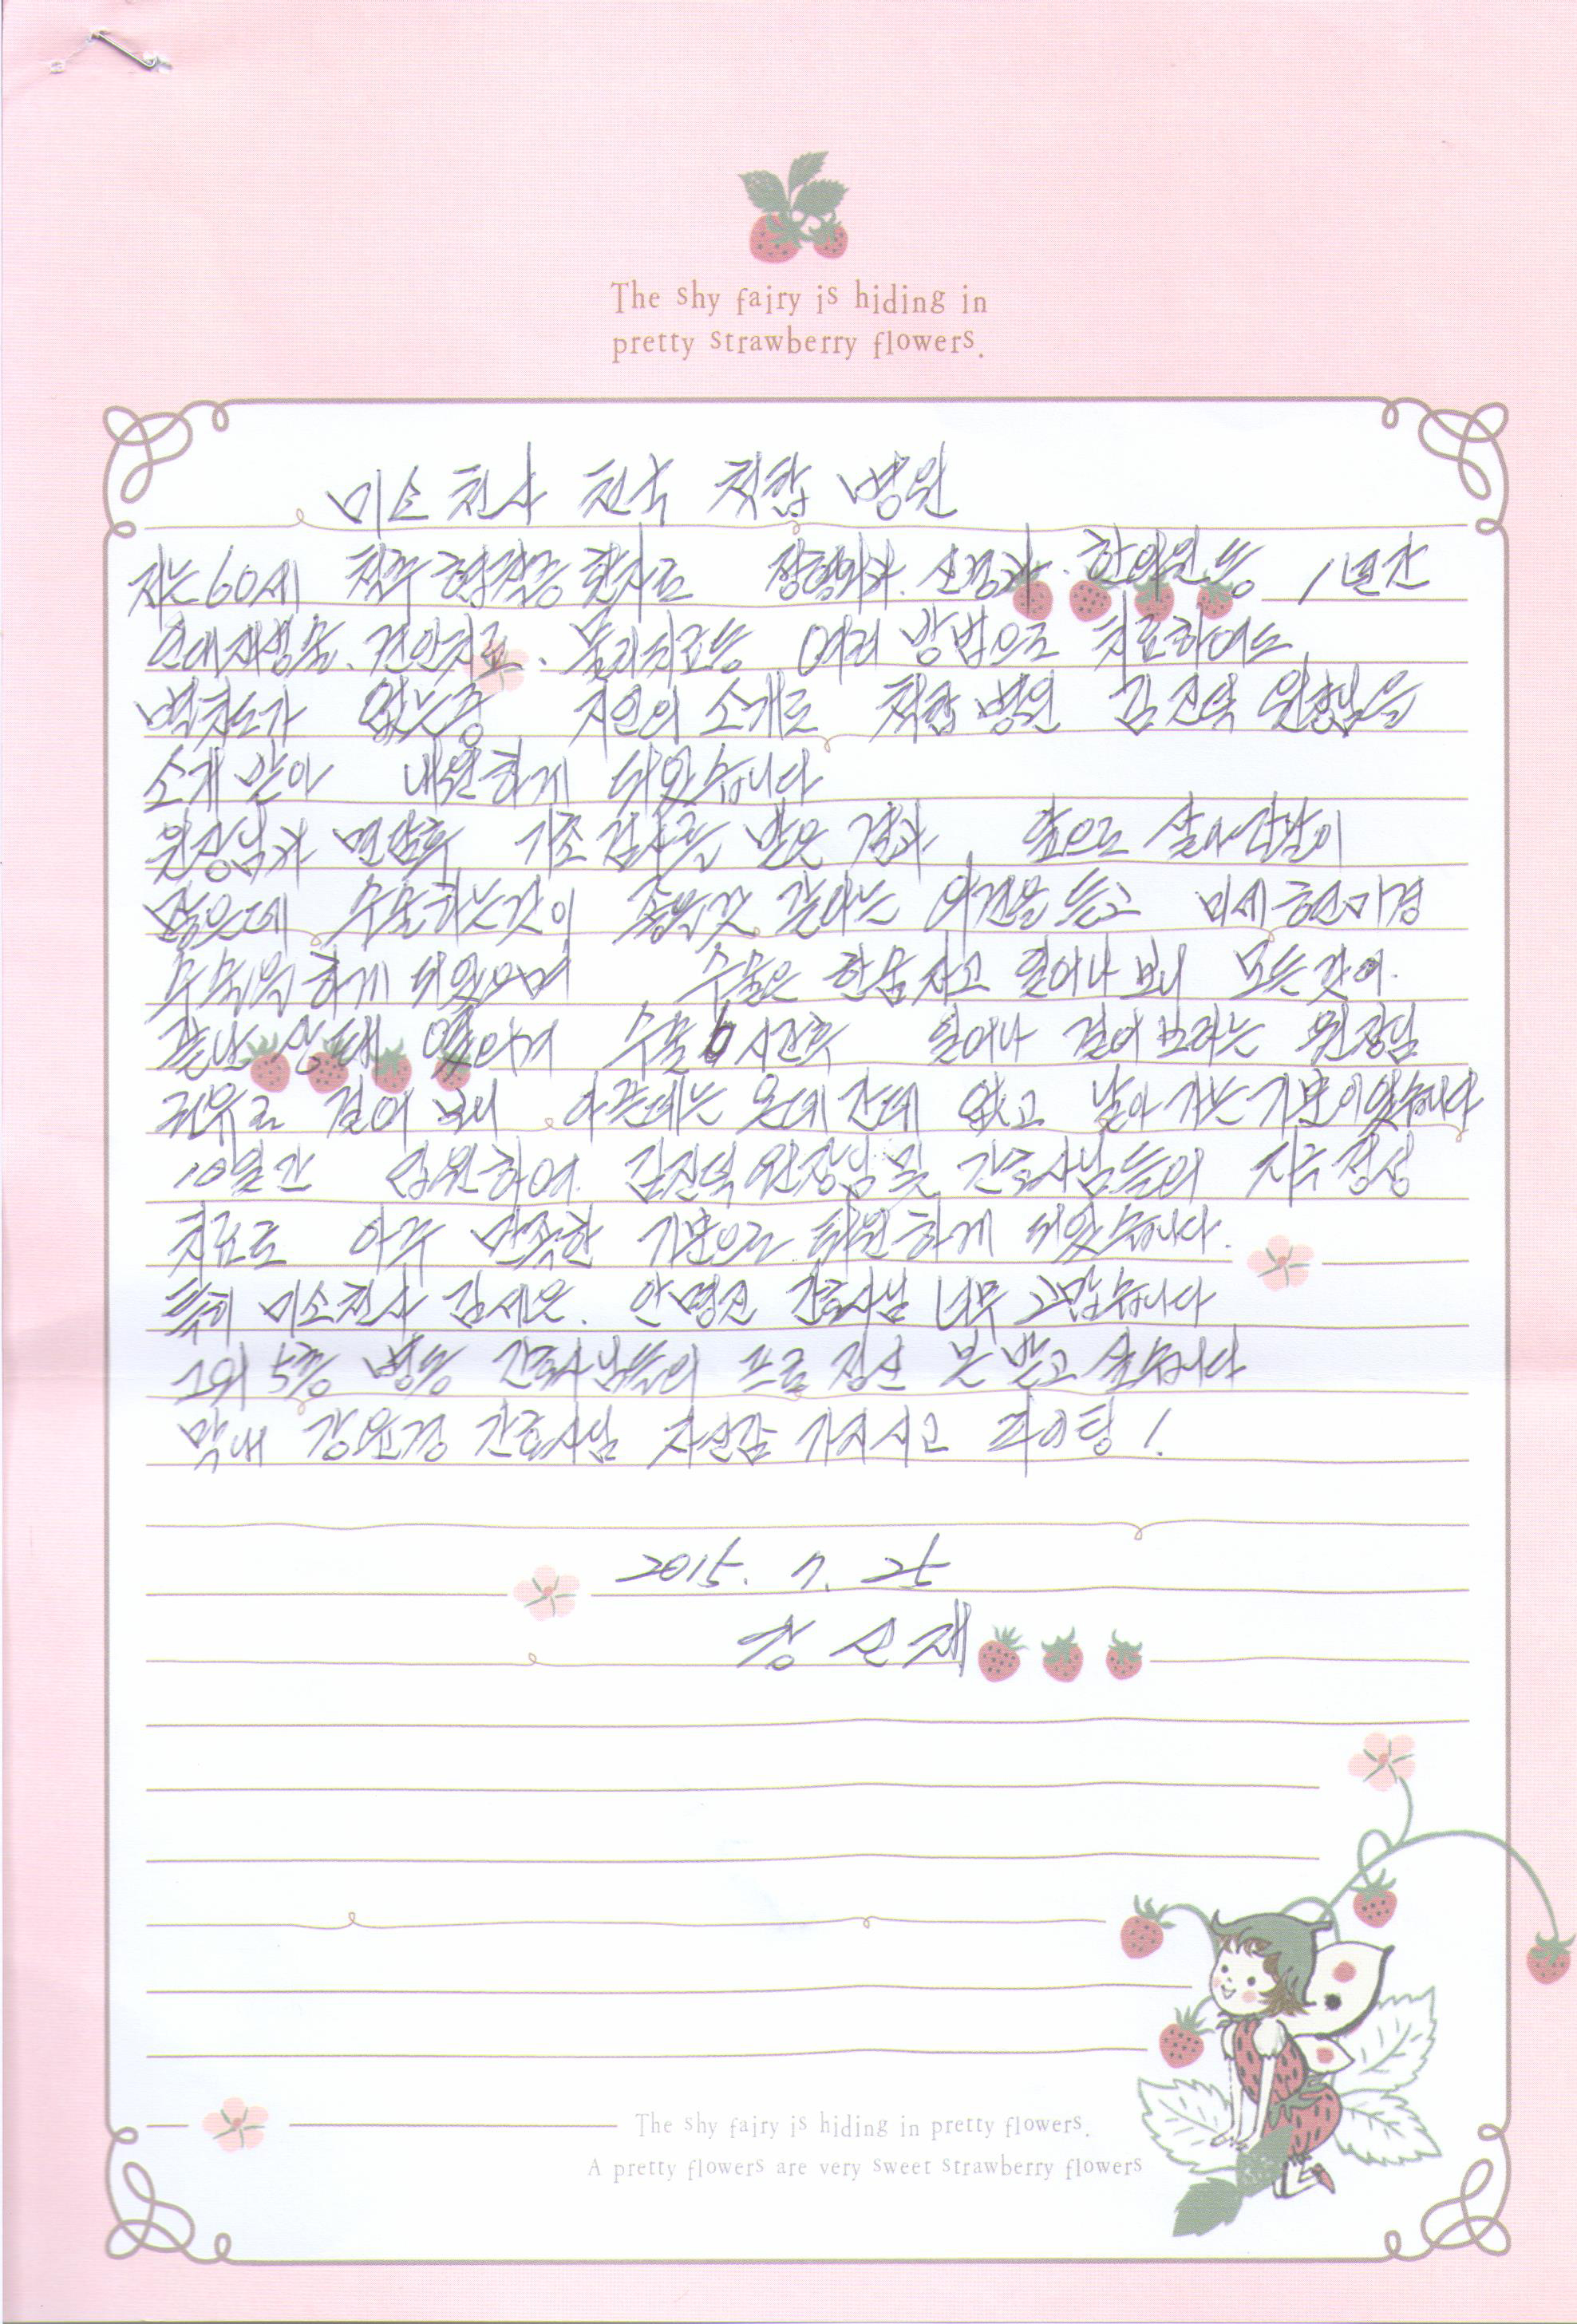 The shy fairy is hiding in
pretty strawberry flowers.
미소 천사 천국 척탑 병원
저는 60세 척추 협착증 환자로 정형외과. 신경과. 한의원등 1년간
인대재생술. 견인치료. 물리치료등 여러 방법으로 치료하여도
별차도가 없는중 지인의 소개로 척탑 병원 김진덕 원장님을
소개 받아 내원하게 되었습니다
원장님과 면담후 기초 검사를 받은 결과, 앞으로 살아갈날이
많은데 수술하는것이 좋을것 같아는 의견을 듣고 미세 현미경
수술을 하게 되었으며 수술은 한숨자고 일어나 보니 모든것이.
끝난 상태 였으며 수술 6시간후 일어나 걸어 보라는 원장님
권유로 걸어 보니 아픈데는 온데 간데 없고 날아 가는 기분이었습니다
10일간 입원하여 김진덕 원장님 및 간호사님들의 지극정성
치료로 아주 만족한 기분으로 퇴원하게 되었습니다.
특히 미소천사 김세은. 안명진 간호사님 너무 고맙습니다
그외 5층 병동 간호사님들의 프로 정신 본 받고 싶습니다
막내 강윤경 간호사님 자신감 가지시고 파이팅!
2015. 7. 25
창 순 재
The shy fairy is hiding in pretty flowers.
A pretty flowers are very sweet strawberry flowers